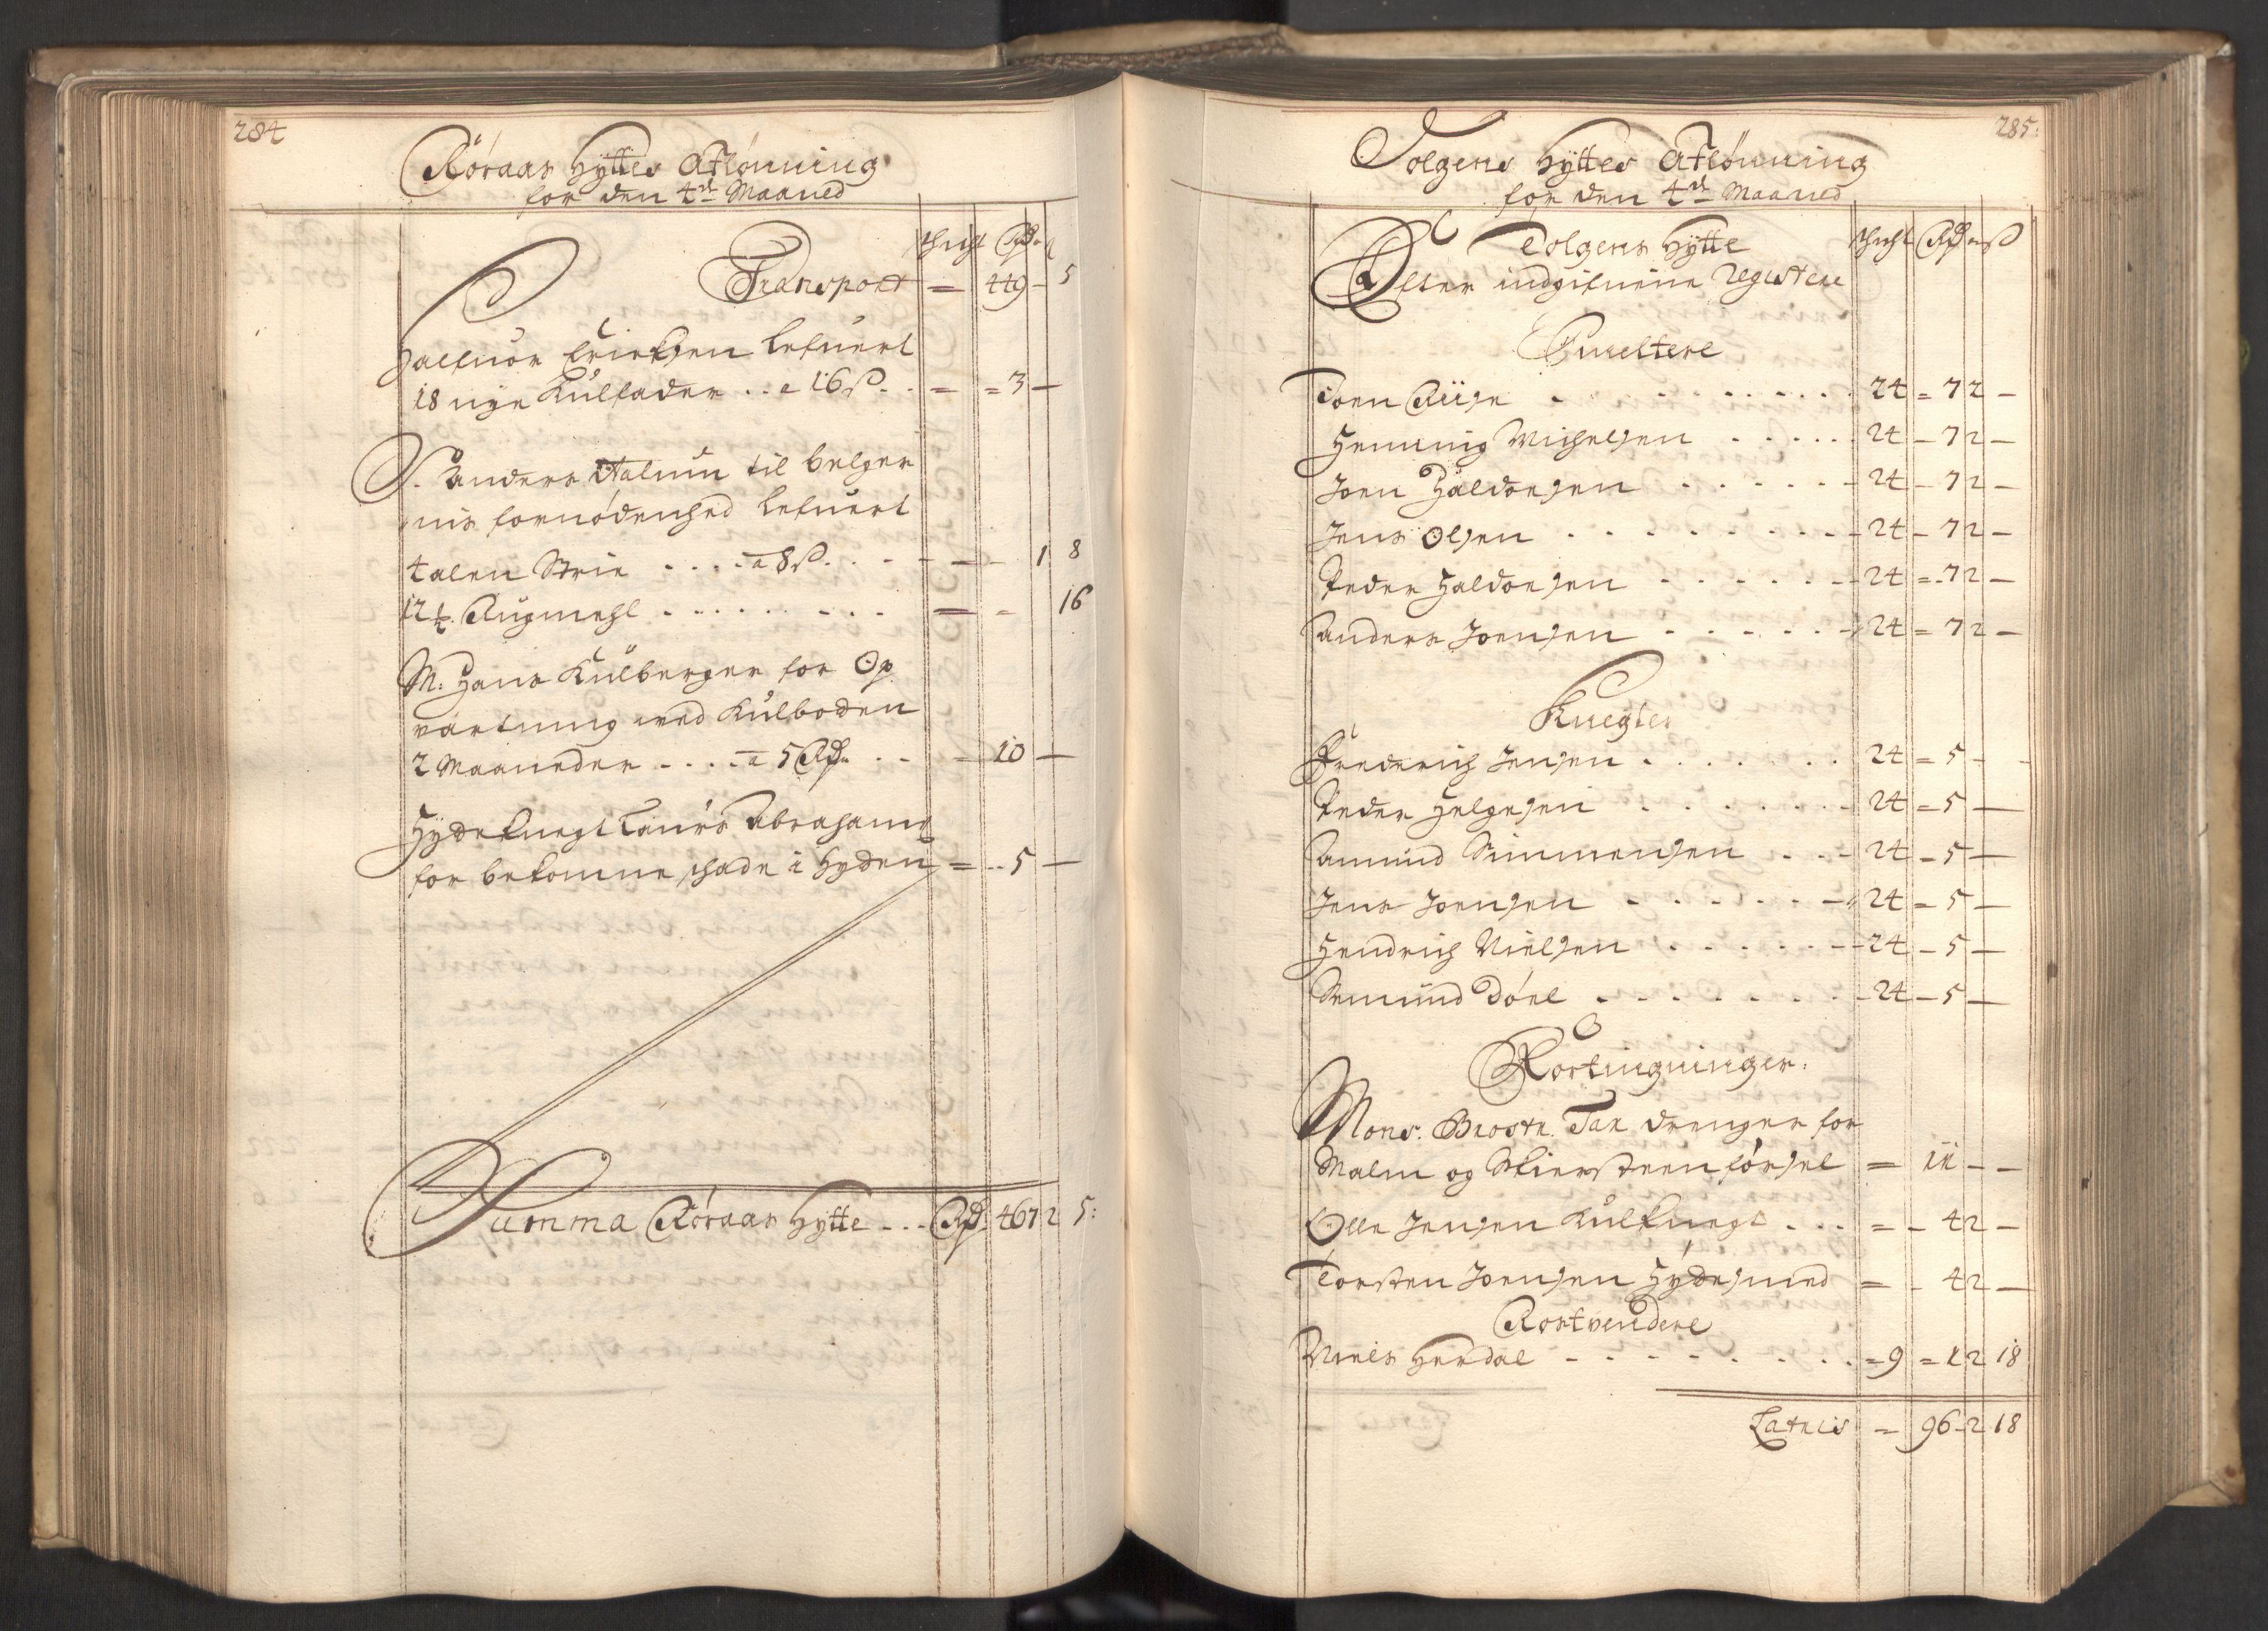 284
Röraas Hyttes Aflönning
for den 4de Maaned
schicht Rdr
Transport = 449 - 5
Halfuor Erichsen lefuert
18 nye Kulfader .. a 16 ß. . = = 3 -
S. Anders til belger
nis fornödenhed lefuert
4 alen Strie . . . . a 8 ß. . . - - 1 8
12 Rugmehl . . . . . . . . . - 16
M: Hans Kulberger for Op
vartning ved Kulboden
2 Maaneder . . . . a 5 Rdr . . = 10 -
Hydeknegt Laurs Abrahams
for bekomne schade i Hyden = .. 5 -
Summa Röraas Hytte . . . Rdr. 467 2 5:
285:
Tolgens Hyttes Aflönning
for den 4de Maaned
Tolgens Hytte schicht Rdr ß
Efter indgifuene Registere
Smeltere
Joen Riise . . . . . . . . . . 24 = 7 2 -
Henning Michelsen . . . . . 24 - 7 2 -
Joen Haldorsen . . . . . . 24 - 7 2 -
Jens Olsen . . . . . . . . . 24 - 7 2 -
Peder Haldorsen . . . . . . 24 = 7 2 -
Anders Joensen . . . . . 24 = 7 2 -
Knegter
Frederich Jensen . . . . . . . 24 = 5 - -
Peder Helgesen . . . . . . . 24 = 5 -
Amund Simmensen . . . 24 - 5 -
Jens Joensen . . . . . . 24 = 5 -
Hendrich Nielsen . . . . . . 24 - 5 -
Semund Döel . . . . . . . . 24 - 5 -
Fortingninger:
Mons. Brostr. Tax drenger for
Malm og Skiersteen försel = 11 - -
Olle Jensen Kulknegt . . . = - 4 2 -
Torsten Joensen Hydesmed = - 4 2 -
Rostvendere
Niels Herdal . . . . . . . . . = 9 = 1 2 18
Lateris = 96 - 2 18